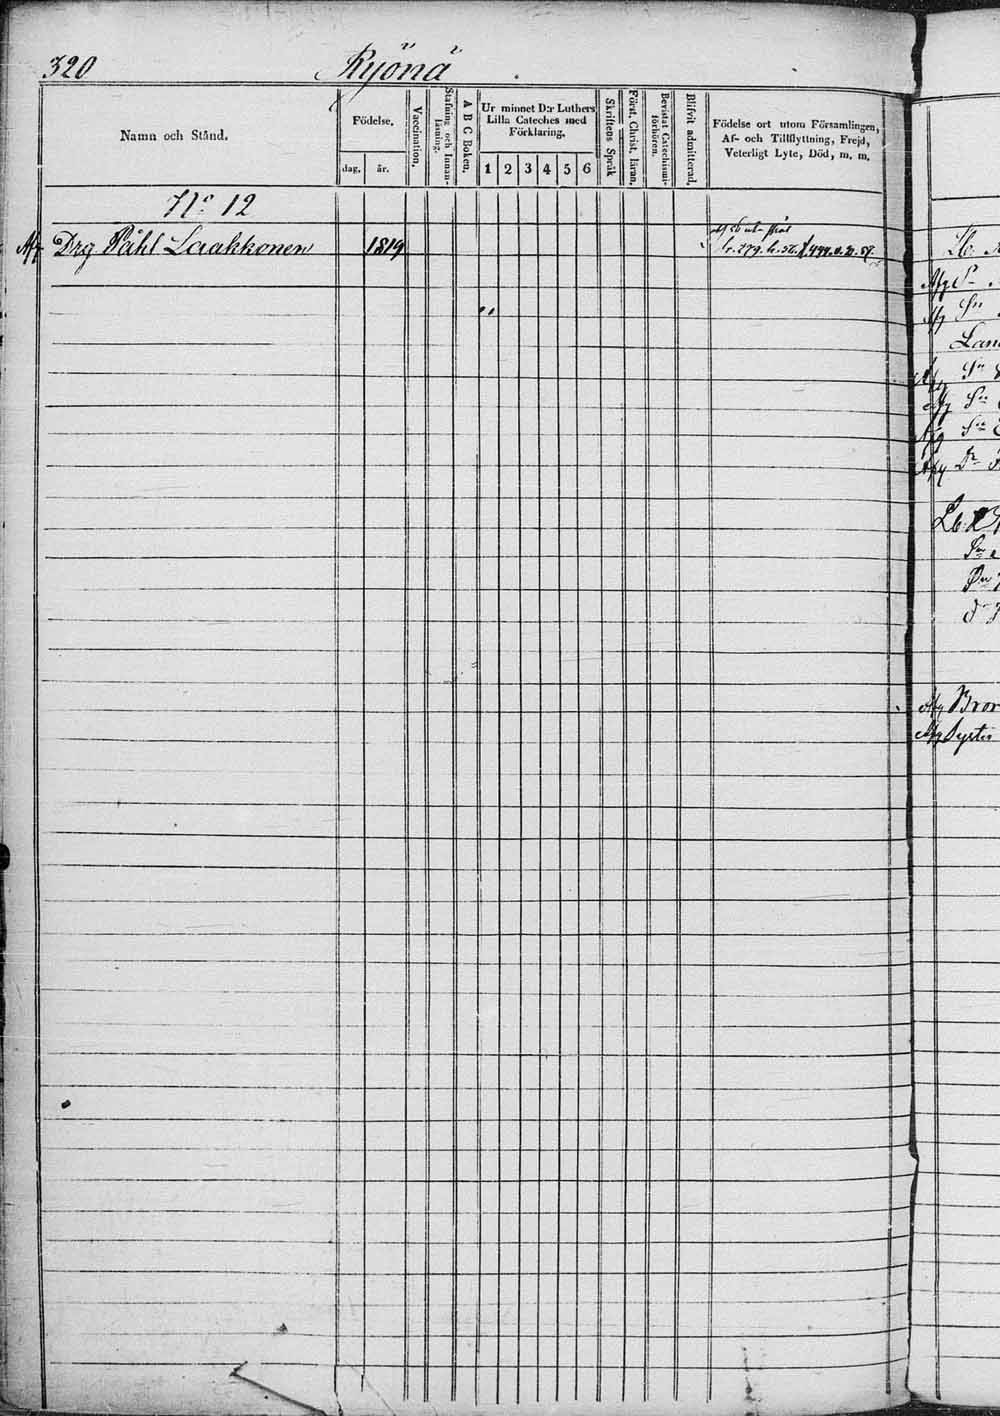 320 Ryönä
Namn och Stånd.
Födelse.
dag. år.
Vaccination.
Stafning och Innan-
läsning.
A B C Boken.
Ur minnet D:r Luthers
Lilla Cateches med
Förklaring.
1 2 3 4 5 6
Skriftens Språk
Först. Christ. läran.
Bevistat Catechismi-
förhören.
Blifvit admitterad.
Födelse ort utom Församlingen,
Af- och Tillflyttning, Frejd,
Veterligt Lyte, Död, m. m.
No 12
Afg Drg Påhl Laakkonen 1819
Lb.
Afg
Afg Sn
Afg Sn
Afg Sn
Afg Sn
Afg Dr
Lb
Afg Bror
Afg Syster